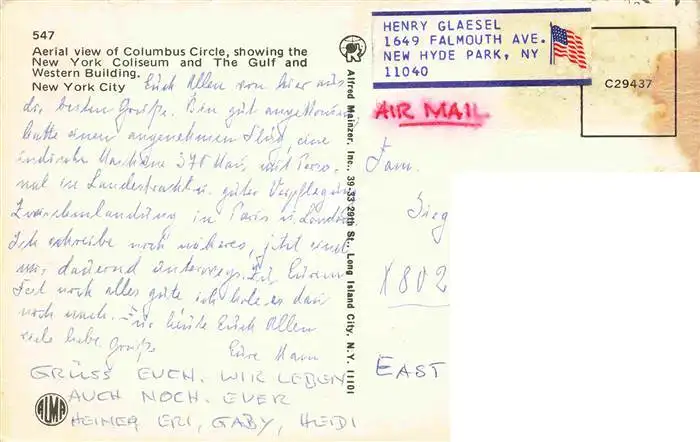 547
Aerial view of Columbus Circle, showing the
New York Coliseum and The Gulf and
Western Building.
New York City
Euch Allen von hier aus
die besten Grüße. Bin gut angekommen
hatte einen angenehmen Flug, eine
indische Maschine 370 Pass, mit Perso-
nal in Landestracht u. guter Verpflegung
Zwischenlandung in Paris u. London
Ich schreibe noch näheres, jetzt sind
wir dauernd unterwegs. Zu Eurem
Fest noch alles gute ich hole es dann
noch nach. Für heute Euch Allen
viele liebe Grüße Eure Mam
GRÜSS EUCH. WIR LEBEN
AUCH NOCH. EUER
HEINER ERI, GABY, HEIDI
ALMA
Alfred Mainzer, Inc., 39-33-29th St., Long Island City, N.Y. 11101
HENRY GLAESEL
1649 FALMOUTH AVE.
NEW HYDE PARK, NY
11040
C29437
AIR MAIL
Fam.
Sieg
X802
EAST